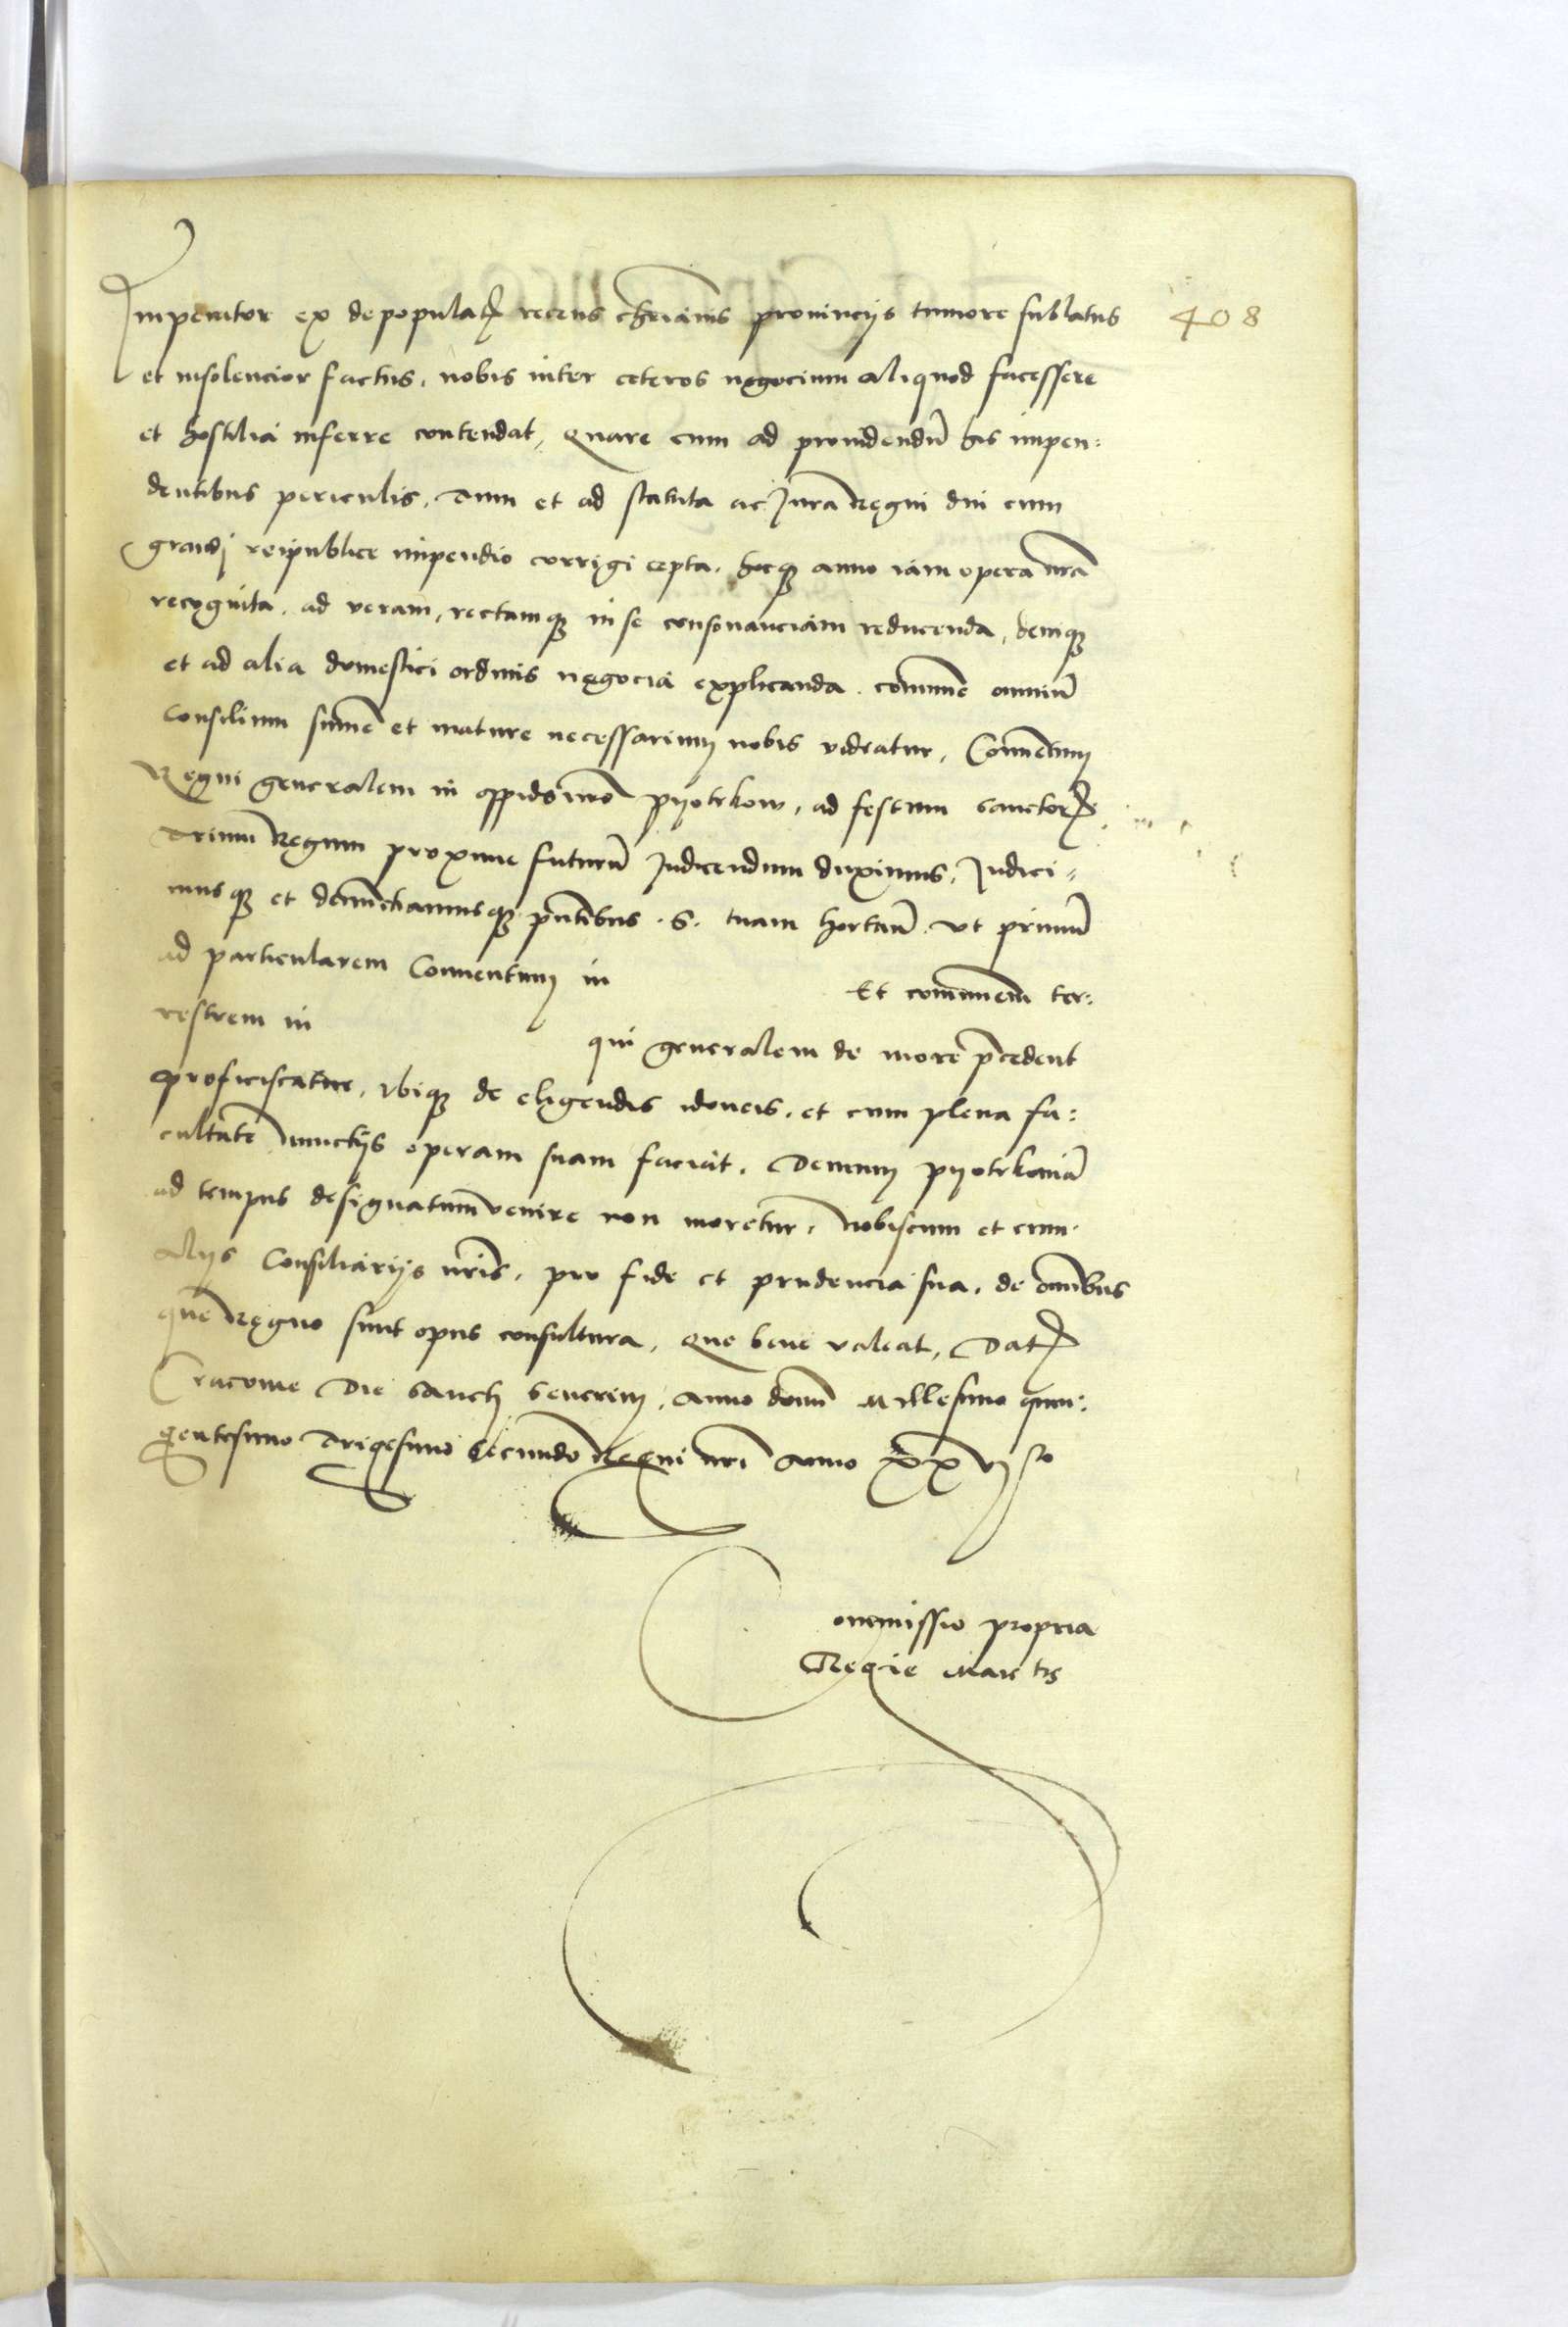 Impenitor ex depopulat recens chrianis provincijs tumore sublatus
408
et insolencior factus, nobis inter ceteros negocium aliquod facessere
et hostilia inferre contendat, Quare cum ad providendũ his impen:
dentibus periculis, Tum et ad statuta ac Jura Regni diu cum
gravi reipublice impendio corrigi cepta, hocq anno iam opera nra
recognita, ad veram, rectamq in se consonanciam reducenda, deniq
et ad alia domestici ordinis negocia explicanda, commune omniũ
Consilium sume et mature necessarium nobis videatur, Conventum
Regni generalem in oppido nro Pyotrkow, ad festum sanctor
Trium Regum proxime futurũ Indicendum duximus, Indici=
musq et denunctiamusq pntibus .S. tuam hortam̃ ut primũ
ad particularem Conventum in
Et communem ter:
restrem in
qui generalem de more pcedent
proficiscatur, ubiq de eligendis idoneis, et cum plena fa:
cultate nunctijs operam suam faciat, Demum pyotrkoviã
ad tempus designatum venire non moretur, nobiscum et cum
alijs Consiliarijs nris, pro fide et prudencia sua, de omnibus
que Regno sunt opus consultura, Que bene valeat, Dat
Cracovie Die Sancti Severini, Anno domi Millesimo quin:
gentesimo Trigesimo Secundo Regni nri Anno XXVI so
Commissio propria
Regie Maiestatis